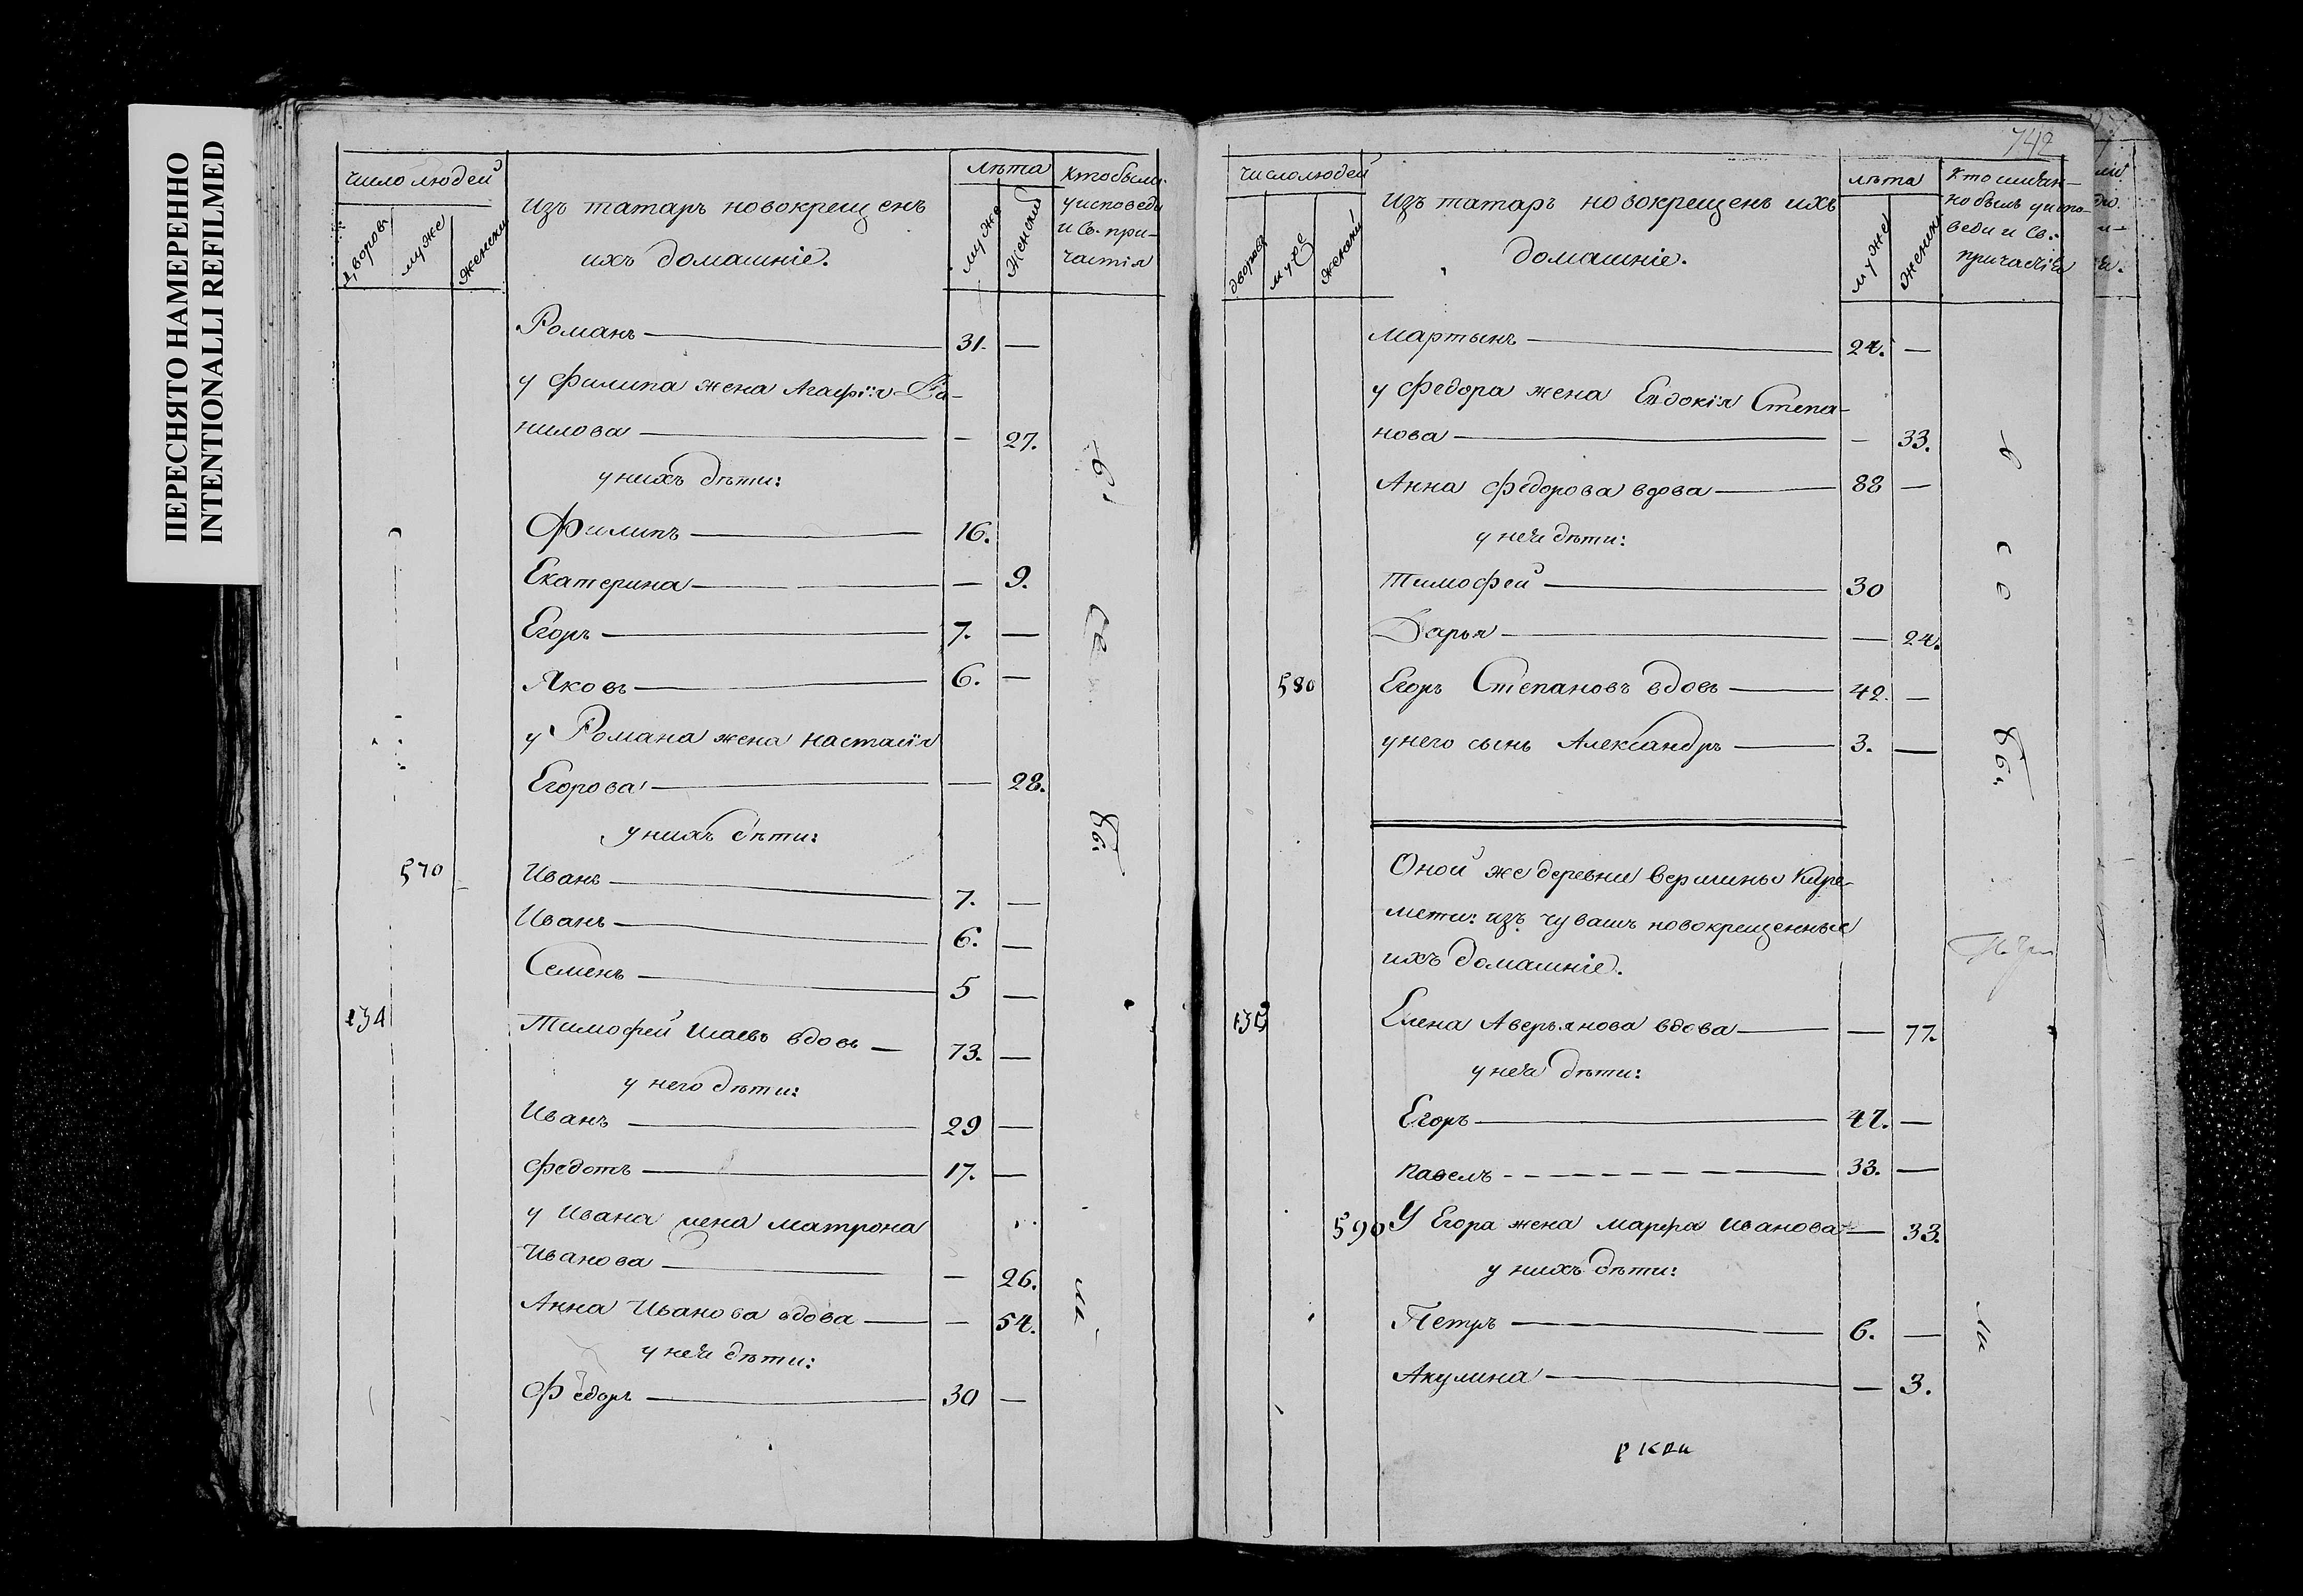 ПЕРЕСНЯТО НАМЕРЕННО
INTENTIONALLI REFILMED
число людей
дворовъ
муже
женски
изъ татаръ новокрещенъ
ихъ домашніе.
лѣта
муже
женский
кто были
у исповеди
и Св. при-
частія
Романъ — 31. —
у Филипа жена Агафія Да-
нилова — — 27.
у нихъ дѣти:
Филипъ — 16.
Екатерина — — 9.
Егоръ — 7. —
Яковъ — 6. —
у Романа жена Настасія
Егорова — — 28.
у нихъ дѣти:
570 Иванъ — 7. —
Иванъ — 6. —
Семенъ — 5 —
134 Тимофей Исаевъ вдовъ — 73. —
у него дѣти:
Иванъ — 29 —
Федотъ — 17. —
у Ивана жена Матрона
Иванова — — 26.
Анна Иванова вдова — — 54.
у нея дѣти:
Федоръ — 30 —
742
число людей
дворовъ
муже
женский
изъ татаръ новокрещенъ ихъ
домашніе.
лѣта
муже
но былъ у испо-
веди и Св.
причастія
Мартынъ — 24. —
у Федора жена Евдокія Степа-
нова — — 33.
Анна Федорова вдова — 88 —
у нея дѣти:
Тимофей — 30
Дарья — — 24.
580 Егоръ Степановъ вдовъ — 42. —
у него сынъ Александръ — 3. —
Оной же деревни вершины Кире-
мети: изъ чувашъ новокрещенные
ихъ домашніе.
135 Елена Аверьянова вдова — — 77.
у нея дѣти:
Егоръ — 47. —
Павелъ — 33. —
590 У Егора жена Марфа Иванова — — 33.
у нихъ дѣти:
Петръ — 6. —
Акулина — — 3.